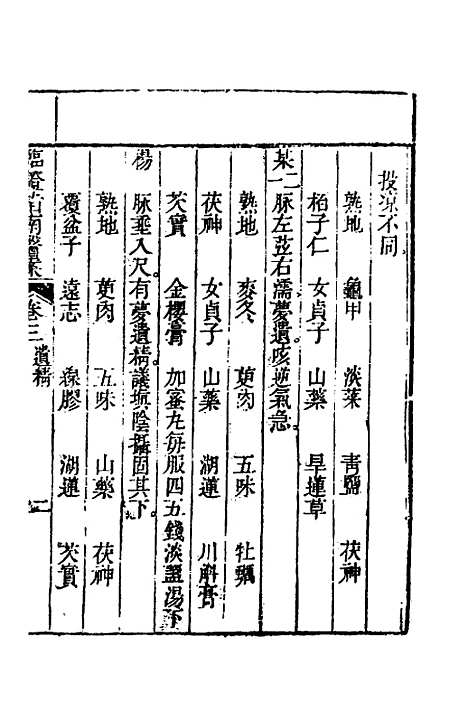 投涼不同
熟地 龜甲 淡菜 青鹽 茯神
柏子仁 女貞子 山藥 旱蓮草
某二一 脉左弦右濡夢遺咳逆氣急。
熟地 麥冬 萸肉 五味 牡蠣
茯神 女貞子 山藥 湖蓮 川斛膏
芡實 金櫻膏 加蜜丸每服四五錢淡鹽湯下
楊 脉垂入尺有夢遺精議填陰攝固其下。
熟地 萸肉 五味 山藥 茯神
覆盆子 遠志 線膠 湖蓮 芡實
臨證指南醫案 卷三遺精